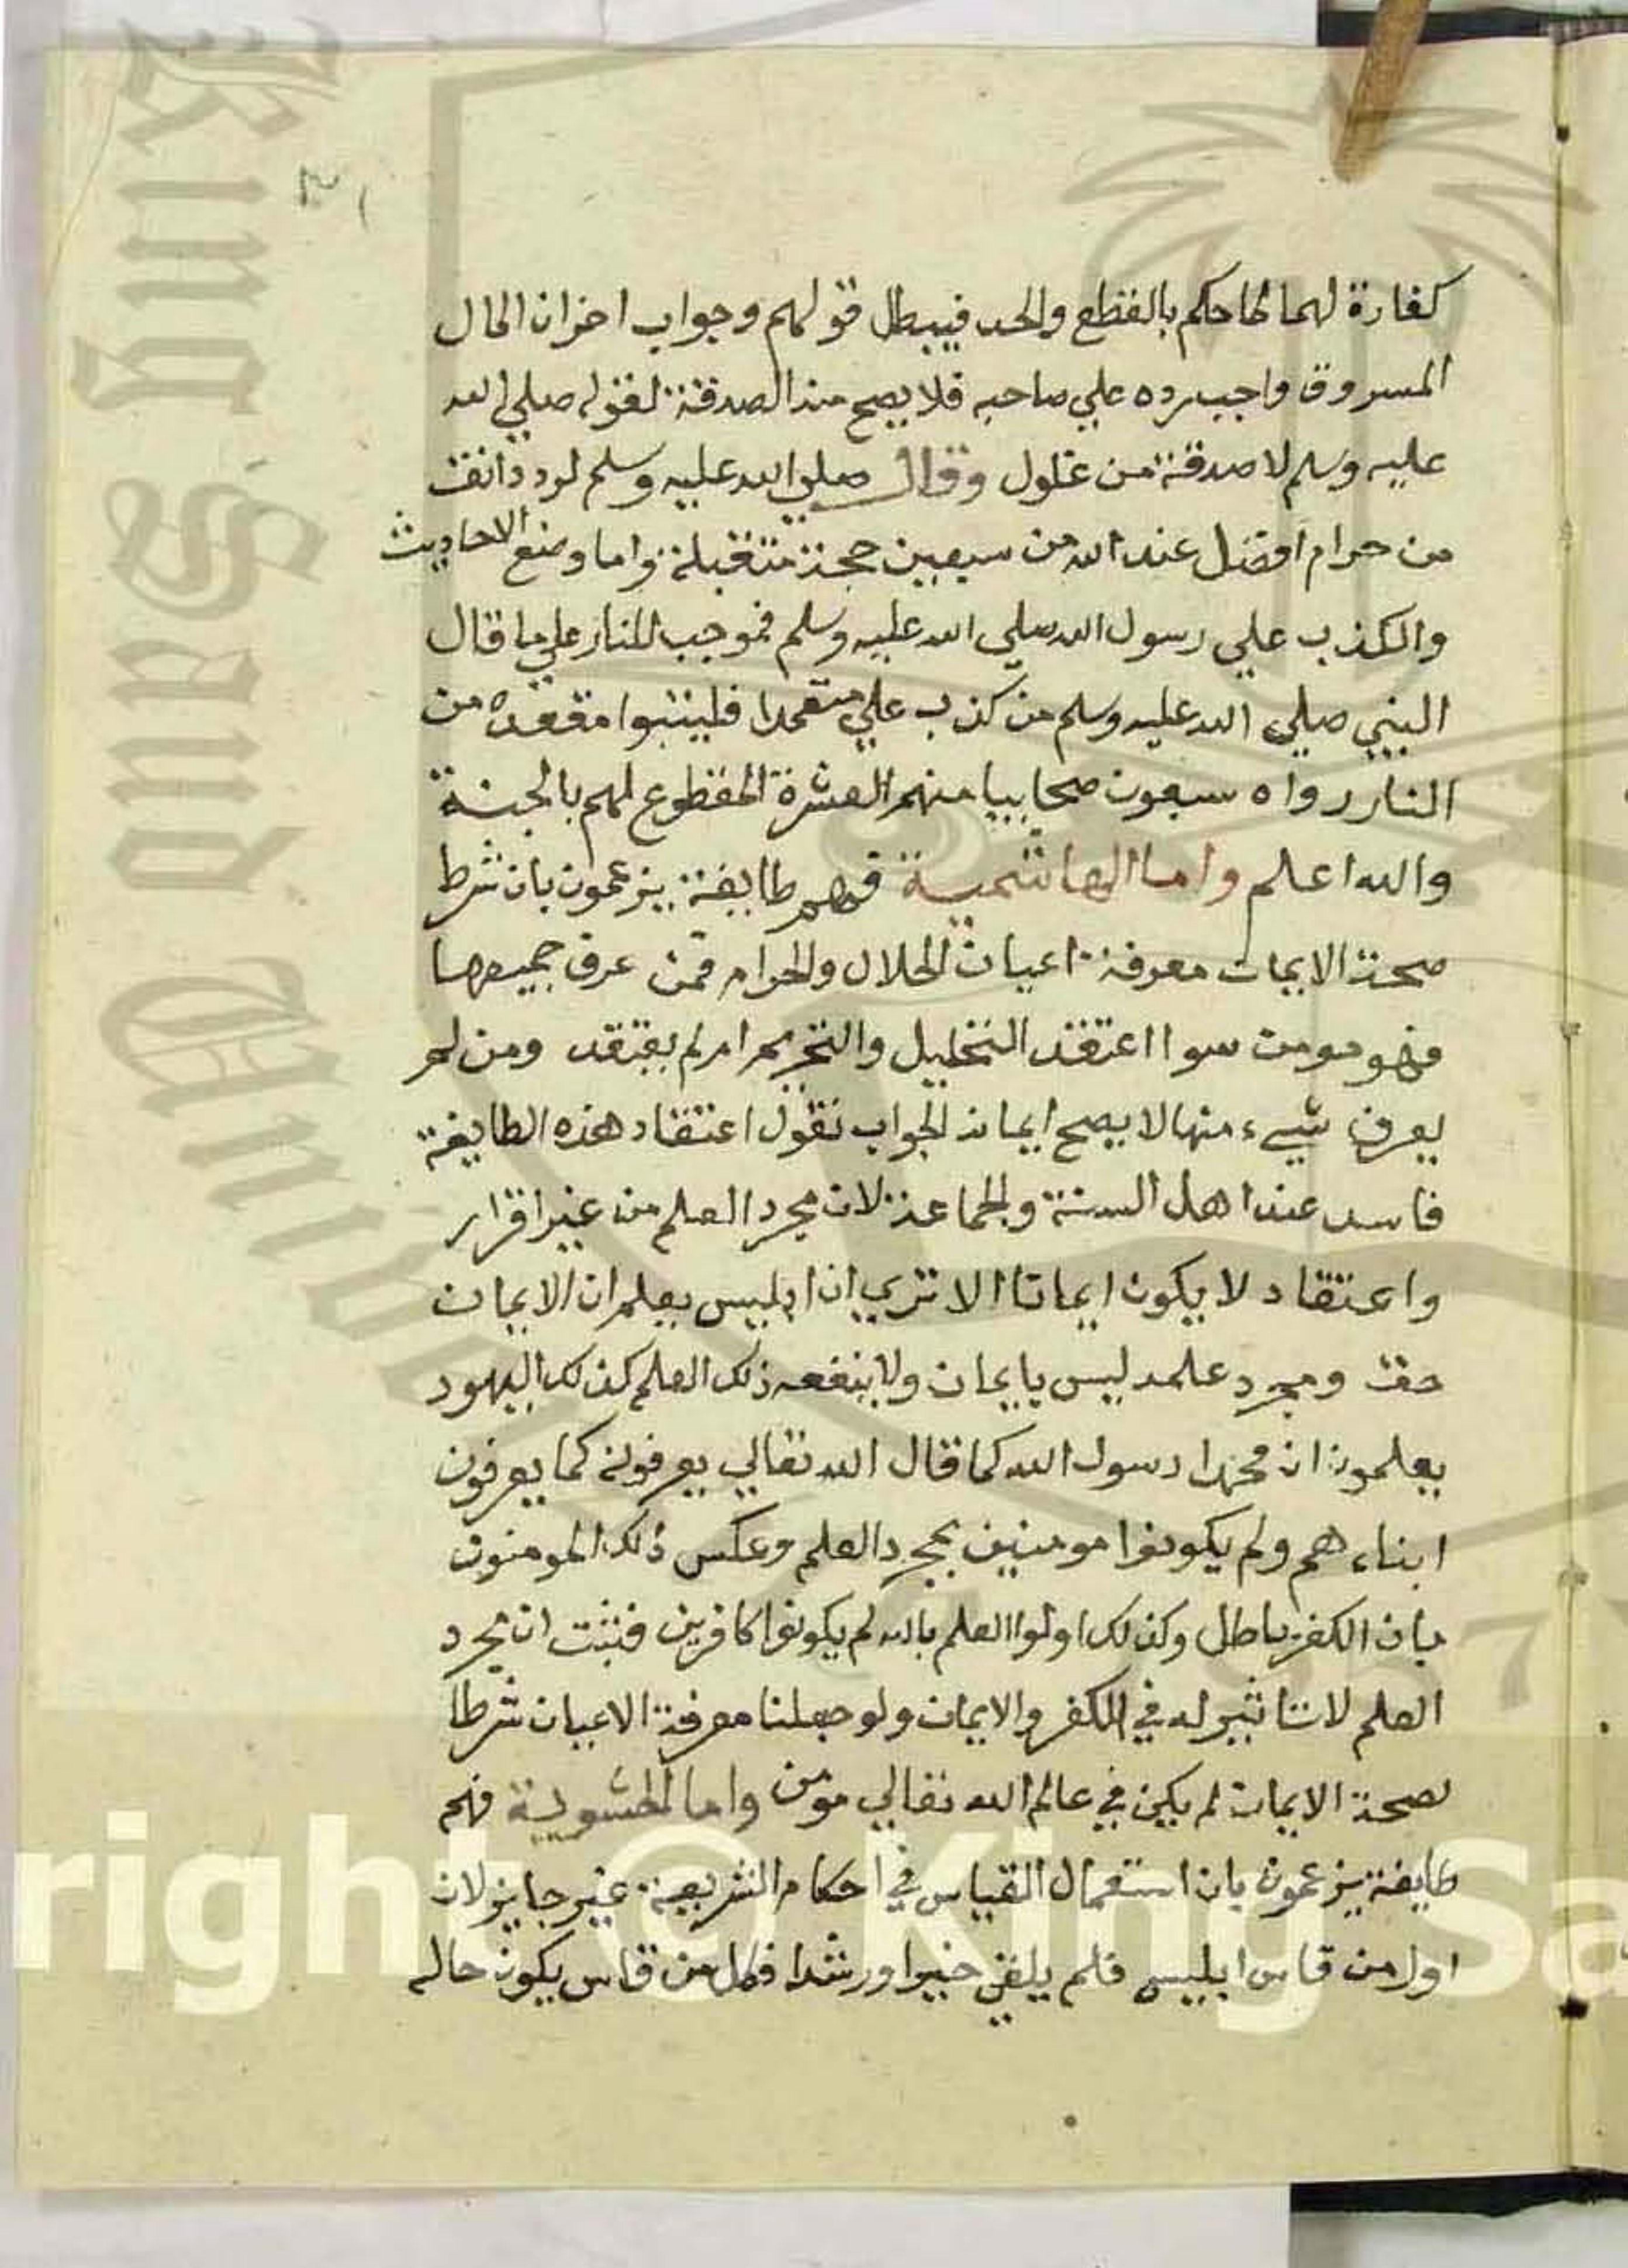 كفارة لهما لما حكم بالقطع والحد فيبطل قولهم وجواب اخر ان المال
المسروق واجب رده علي صاحبه فلا يصح منه الصدقة لقوله صلي الله
عليه وسلم لا صدقة من غلول وقال صلي الله عليه وسلم لرد دانق
من حرام افضل عند الله من سبعين حجة متقبلة واما وضع الاحاديث
والكذب علي رسول الله صلي الله عليه وسلم فموجب للنار علي ما قال
النبي صلي الله عليه وسلم من كذب علي متعمدا فليتبوا مقعده من
النار رواه سبعون صحابيا منهم العشرة المقطوع لهم بالجنة
والله اعلم واما الهاشمية فهم طايفة يزعمون بان شرط
صحة الايمان معرفة اعيان الحلال والحرام فمن عرف جميعها
فهو مومن سوا اعتقد التحليل والتحريم ام لم يعتقد ومن لم
يعرف شيء منها لا يصح ايمانه الجواب نقول اعتقاد هذه الطايفة
فاسد عند اهل السنة والجماعة لان مجرد العلم من غير اقرار
واعتقاد لا يكون ايمانا الا تري ان ابليس يعلم ان الايمان
حق ومجرد علمه ليس بايمان ولا ينفعه ذلك العلم كذلك اليهود
يعلمون ان محمدا رسول الله كما قال الله تعالي يعرفونه كما يعرفون
ابناءهم ولم يكونوا مومنين بمجرد العلم وعكس ذلك المومنون
بان الكفر باطل وكذلك اولوا العلم بالله لم يكونوا كافرين فثبت ان مجرد
العلم لا تاثير له في الكفر والايمان ولو جعلنا معرفة الاعيان شرطا
لصحة الايمان لم يكن في عالم الله تعالي مومن واما الحشوية فهم
طايفة يزعمون بان استعمال القياس في احكام الشريعة غير جايز لان
اول من قاس ابليس فلم يلق خيرا ورشدا فكل من قاس يكون حاله
King Saud Univer
1957
right © King Sa